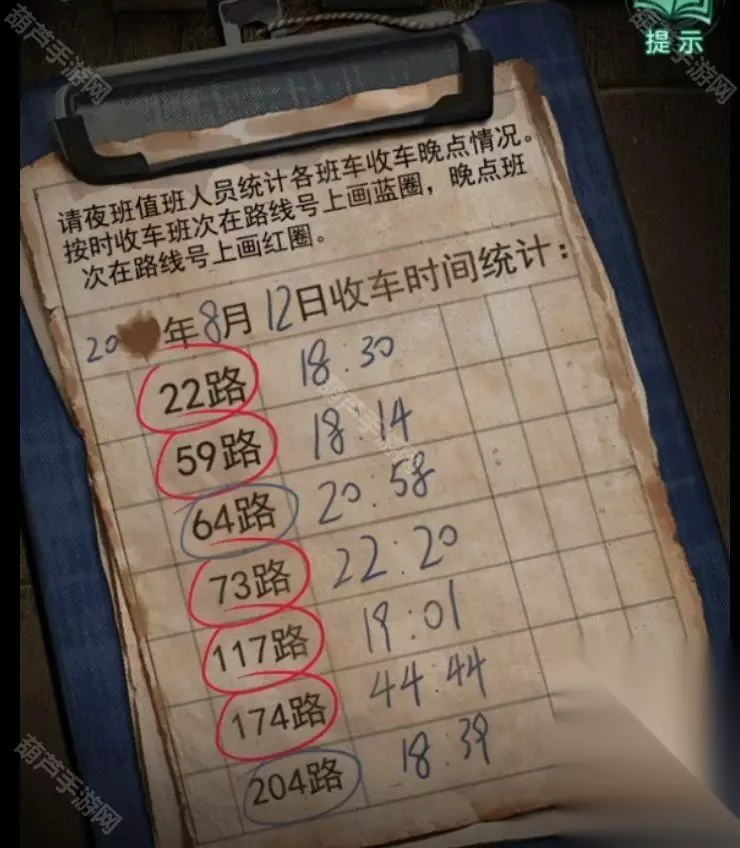 提示
请夜班值班人员统计各班车收车晚点情况。
按时收车班次在路线号上画蓝圈，晚点班
次在路线号上画红圈。
20 年8月12日收车时间统计：
22路 18:30
59路 18:14
64路 20:58
73路 22:20
117路 19:01
174路 44:44
204路 18:39
葫芦手游网
葫芦手游网
葫芦手游网
葫芦手游网
葫芦手游网